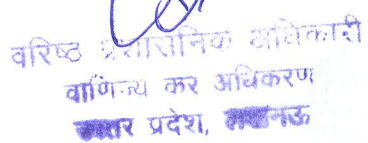 वरिष्ठ प्रशासनिक अधिकारी
वाणिज्य कर अधिकरण
उत्तर प्रदेश, लखनऊ